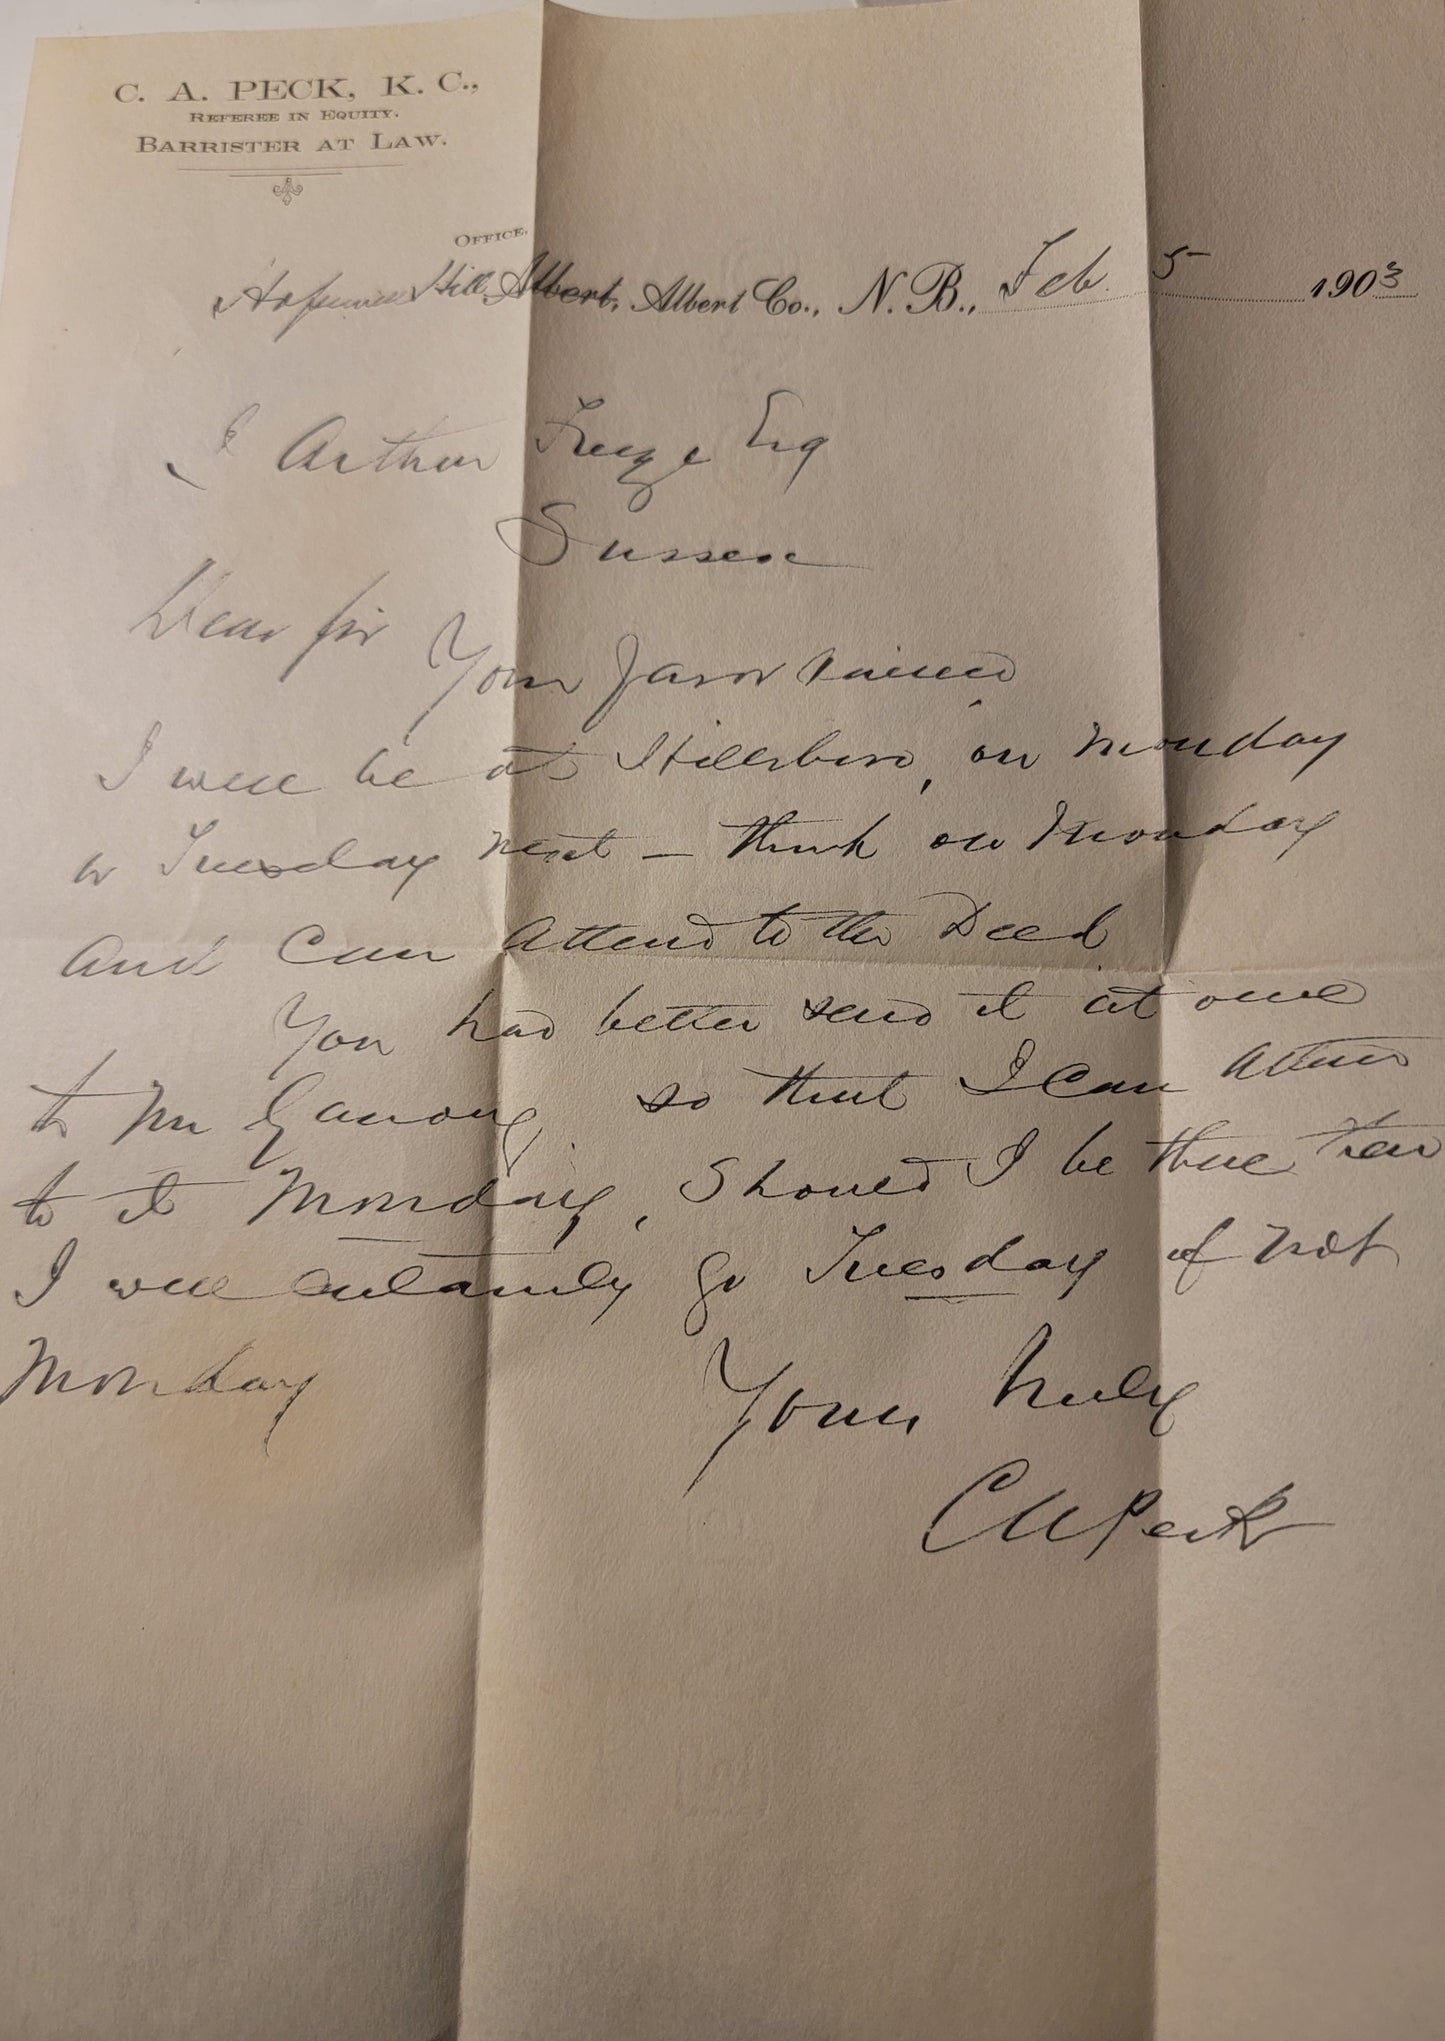 C. A. PECK, K. C.,
REFEREE IN EQUITY.
BARRISTER AT LAW.
OFFICE,
Hopewell Hill, Albert, Albert Co., N. B., Feb. 5 1903
J Arthur Freeze Esq
Sussex
Dear Sir
Your favor received
I will be at Hillsboro, on Monday
or Tuesday next — think on Monday
and can attend to the Deed
You had better send it at once
to Mr Ganong so that I can attend
to it Monday, Should I be there then
I will certainly go Tuesday if not
Monday
Yours truly
C A Peck